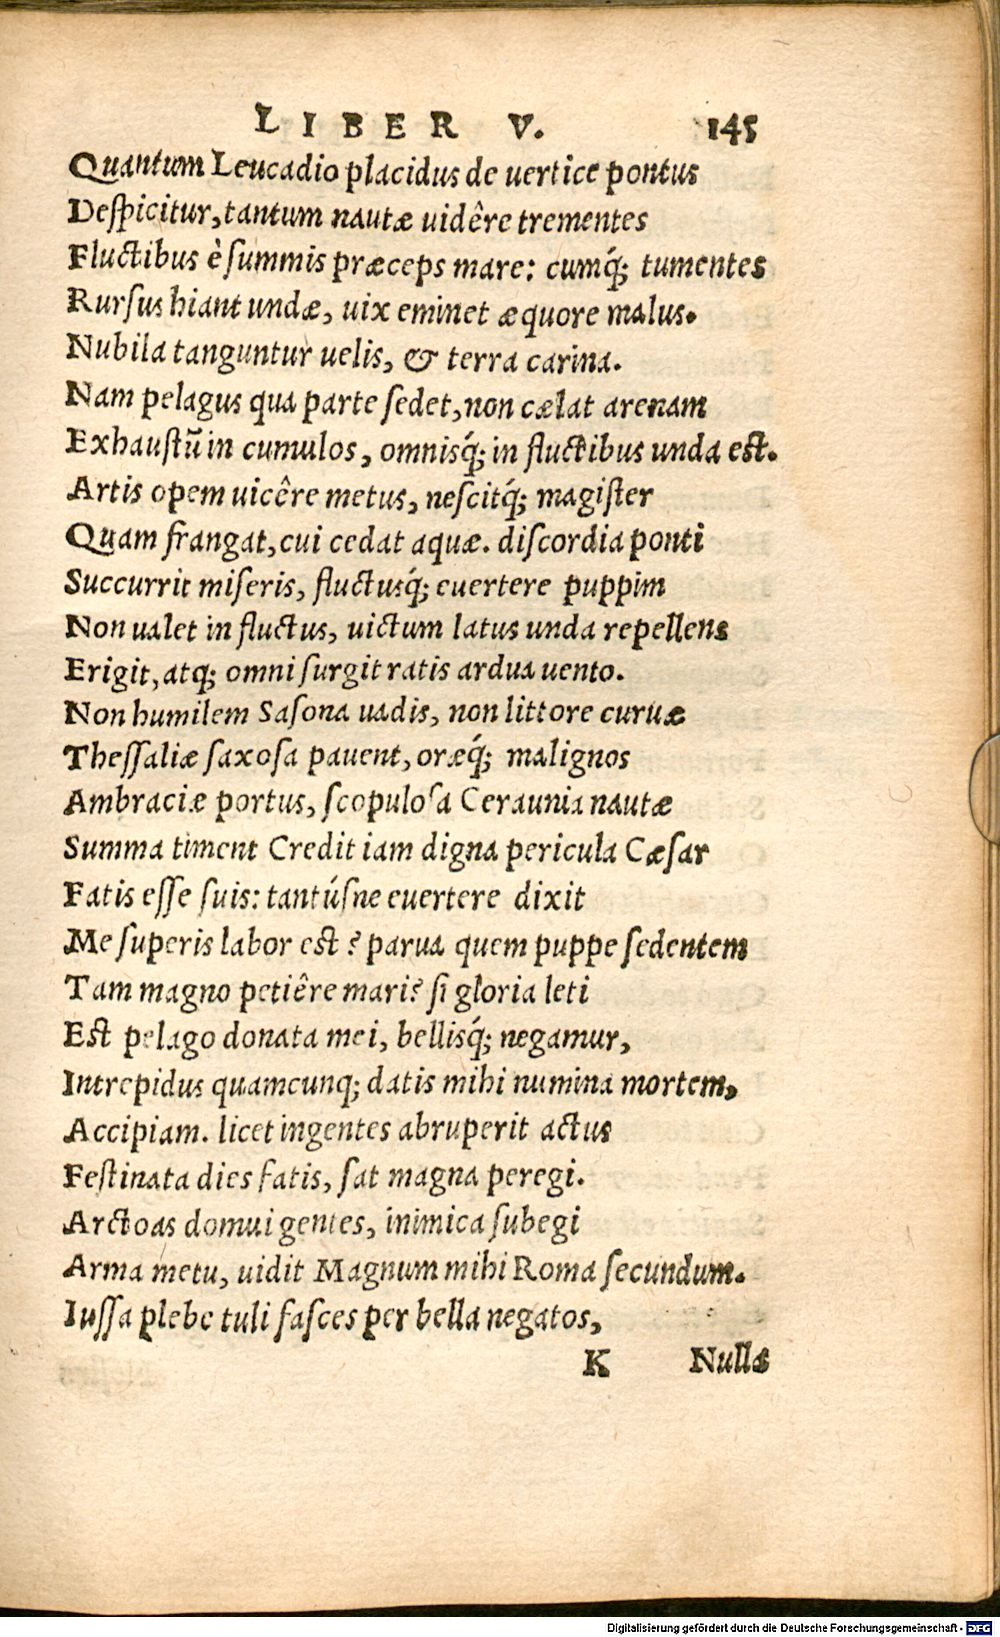 LIBER V. 145
Quantum Leucadio placidus de uertice pontus
Despicitur, tantum nautæ uidêre trementes
Fluctibus è summis præceps mare: cumq́; tumentes
Rursus hiant undæ, uix eminet æquore malus.
Nubila tanguntur uelis, & terra carina.
Nam pelagus qua parte sedet, non cælat arenam
Exhaustũ in cumulos, omnisq́; in fluctibus unda est.
Artis opem uicêre metus, nescitq́; magister
Quam frangat, cui cedat aquæ. discordia ponti
Succurrit miseris, fluctusq́; euertere puppim
Non ualet in fluctus, uictum latus unda repellens
Erigit, atq; omni surgit ratis ardua uento.
Non humilem Sasona uadis, non littore curuæ
Thessaliæ saxosa pauent, oræq́; malignos
Ambraciæ portus, scopulosa Ceraunia nautæ
Summa timent Credit iam digna pericula Cæsar
Fatis esse suis: tantúsne euertere dixit
Me superis labor est? parua quem puppe sedentem
Tam magno petiêre mari? si gloria leti
Est pelago donata mei, bellisq́; negamur,
Intrepidus quamcunq; datis mihi numina mortem,
Accipiam. licet ingentes abruperit actus
Festinata dies fatis, sat magna peregi.
Arctoas domui gentes, inimica subegi
Arma metu, uidit Magnum mihi Roma secundum.
Iussa plebe tuli fasces per bella negatos,
K Nullæ
Digitalisierung gefördert durch die Deutsche Forschungsgemeinschaft - DFG